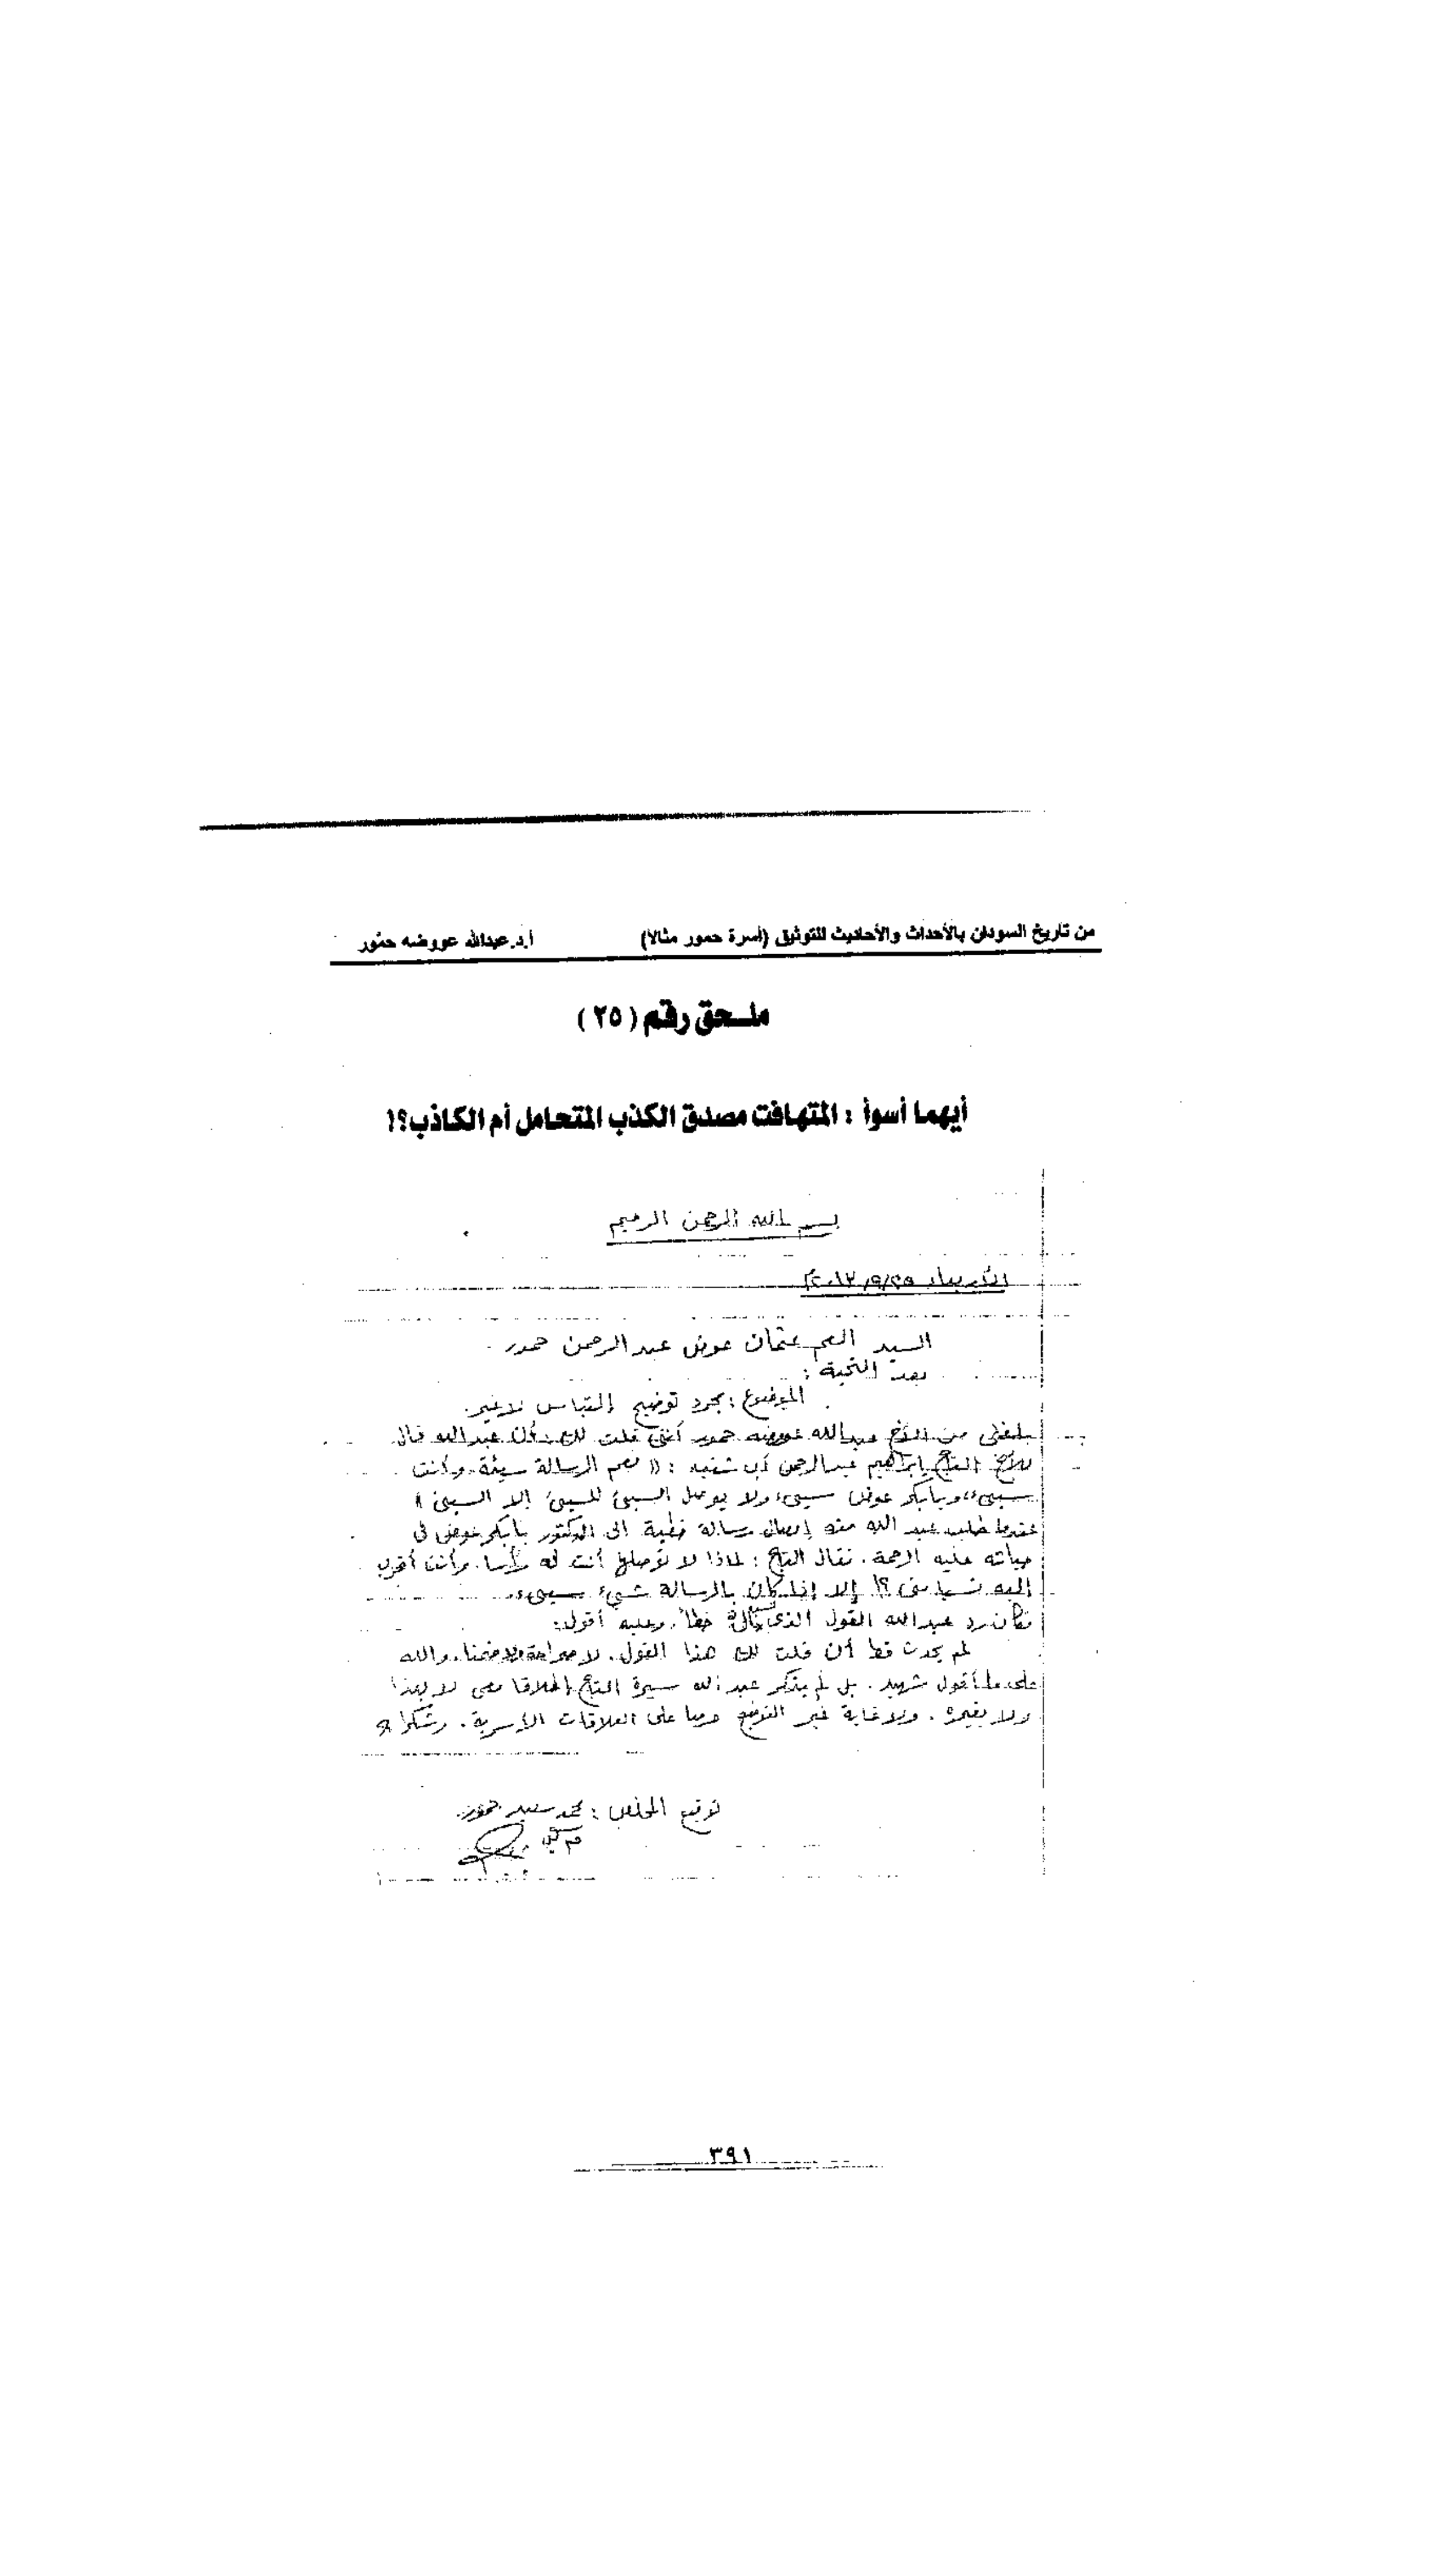 من تاريخ السودان بالأحداث والأحاديث للتوثيق (أسرة حمور مثالا) أ.د.عبدالله عووضه حمّور
ملحق رقم (٢٥)
أيهما أسوأ : المتهافت مصدق الكذب المتحامل أم الكاذب؟!
بسم الله الرحمن الرحيم
الأربعاء
السيد العم عثمان عوض عبد الرحمن حمور
بعد التحية :
الموضوع : مجرد توضيح إلتباس لا غير.
بلغني من الأخ عبدالله عووضه حمور أنني قلت لك بأن عبد الله قال
للأخ التاج إبراهيم عبد الرحمن أبو شنب : « نعم الرسالة سيئة وأنت
سيىء، وبابكر عوض سيىء ولا يوصل السيئ للسيئ إلا السيئ »
عندما طلب عبد الله منه إيصال رسالة خطية الى الدكتور بابكر عوض فى
حياته عليه الرحمة . فقال التاج : لماذا لا توصلها أنت له رأسا. وأنت أقرب
إليه نسبا منى ؟! إلا إذا كان بالرسالة شيىء سيىء.
فكان رد عبد الله القول الذى خطأ. وعليه أقول:
لم يحدث قط أن قلت لك هذا القول. لا صراحة ولا ضمنا. والله
على ما أقول شهيد . بل لم يذكر عبد الله سيرة التاج إطلاقا معى لا بهذا
ولا بغيره . ولا غاية غير التوضيح حرصا على العلاقات الأسرية . وشكرا
توقيع المخلص : محمد سعيد حمور.
٣٩١